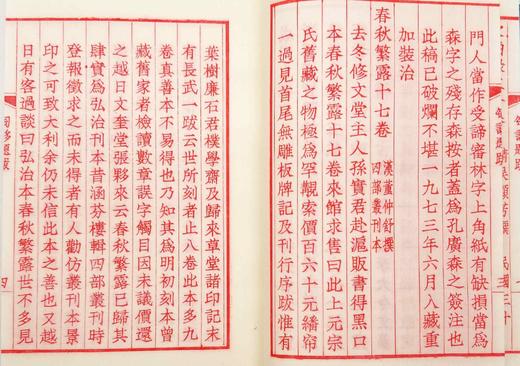 門人當作受諦審林字上角紙有缺損當爲
森字之殘存森按者蓋爲孔廣森之簽注也
此稿已破爛不堪一九七三年六月入藏重
加裝治
春秋繁露十七卷
漢董仲舒撰
四部叢刊本
去冬修文堂主人孫實君赴滬販書得黑口
本春秋繁露十七卷來館求售曰此上元宗
氏舊藏之物極爲罕觀索價百六十元繙帘
一過見首尾無雕板牌記及刊行序跋惟有
葉樹廉石君樸學齋及歸來草堂諸印記末
有長武一跋云世所刻者止八卷此本多九
卷真善本不易得也乃知其爲明初刻本曾
藏舊家者檢讀數章誤字觸目因未議價還
之越日文奎堂張夥來云春秋繁露已歸其
肆實爲弘治刊本昔涵芬樓輯四部叢刊時
登報徵求之而未得者有人勸仿叢刊本景
印之可致大利余仍未信此本之善也又越
日有客過談曰弘治本春秋繁露世不多見
四